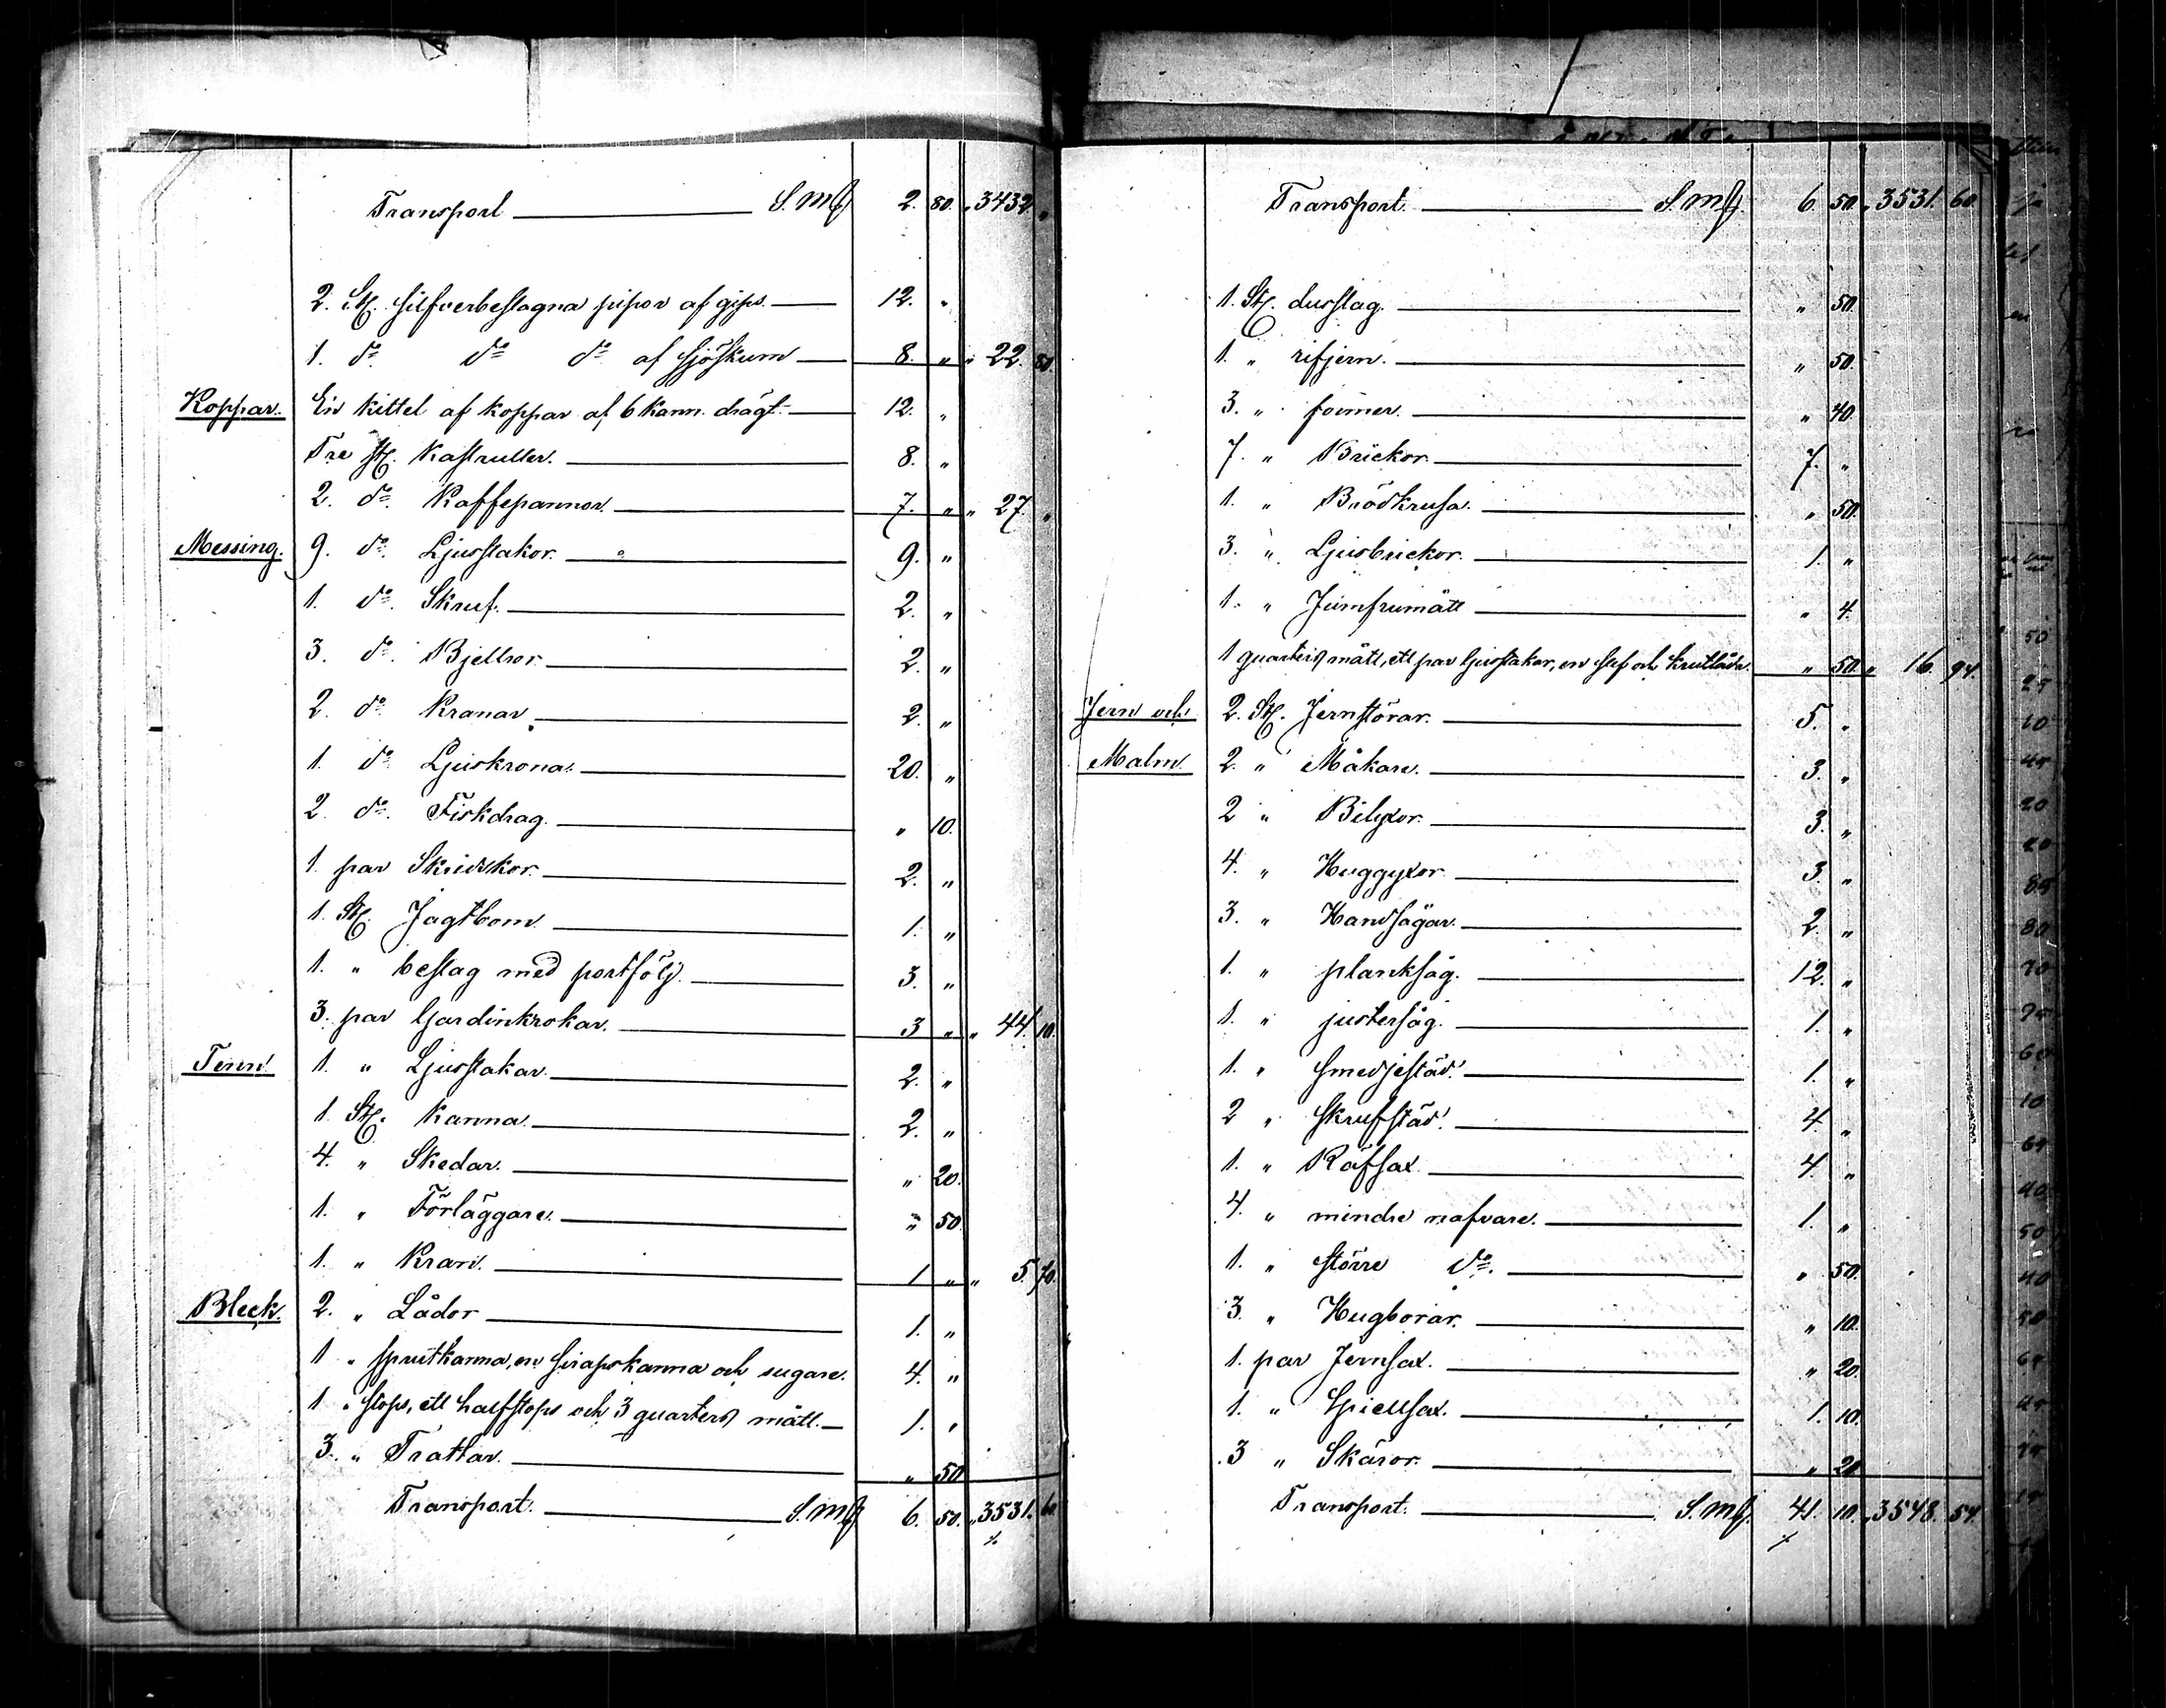 Transport S.mf 2. 80. „ 3432. „
2. St. silfverbeslagna pipor af gips. 12. „
1. do do do af sjöskum 8. „ „ 22. 80.
Koppar. En kittel af koppar af 6 kann. drägt. 12. „
Tre st. Kastruller. 8. „
2. do. Kaffepannor. 7. „ „ 27. „
Messing. 9. do. Ljusstakar. 9. „
1. do. Skruf. 2. „
3. do. Bjellror. 2. „
2. do. Kranar 2. „
1. do. Ljuskrona. 20. „
2. do. Fiskdrag. „ 10.
1. par Skridskor. 2. „
1. St. Jagtbom. 1. „
1. „ beslag med portfölj. 3. „
3. par Gardinkrokar. 3 „ „ 44. 10.
Tenn. 1. „ Ljusstakar. 2. „
1. St. Kanna. 2. „
4. „ Skedar. „ 20.
1. „ Förläggare. „ 50.
1. „ Kran. 1 „ „ 5. 70.
Bleck. 2. „ Lådor 1. „
1 „ sprutkanna, en sirapskanna och sugare. 4. „
1 „ stops, ett halfstops och 3 quarters mått. 1. „
3. „ Trattar. „ 50
Transport. S.mf 6. 50. „ 3531. 60
Transport. S.mf. 6. 50. „ 3531. 60
1. St. durslag. „ 50.
1. „ rifjern. „ 50.
3. „ former. „ 40.
7. „ Brickor. 7. „
1. „ Brödkrusa. „ 50.
3. „ Ljusbrickor. 1. „
1. „ Jumfrumått „ 4.
1 quarters mått, ett par ljusstakar, en och krutlåda. „ 50. „ 16. 94.
Jern och 2. St. Jernstörar. 5. „
Malm. 2. „ Måkare. 3. „
2 „ Bilyxor. 3. „
4. „ Huggyxor. 3. „
3. „ Handsågar. 2. „
1. „ planksåg. 12. „
1. „ justersåg. 1. „
1. „ Smedjestäd. 1. „
2 „ Skrufstäd. 4. „
1. „ Räfsax. 4. „
4. „ mindre nafvare. 1. „
1. „ större do. „ 50.
3. „ Hugborar. „ 10.
1. par Jernsax. „ 20.
1. „ 1. 10.
3 „ Skäror. „ 20
Transport. S.mf. 41. 10. „ 3548. 54.